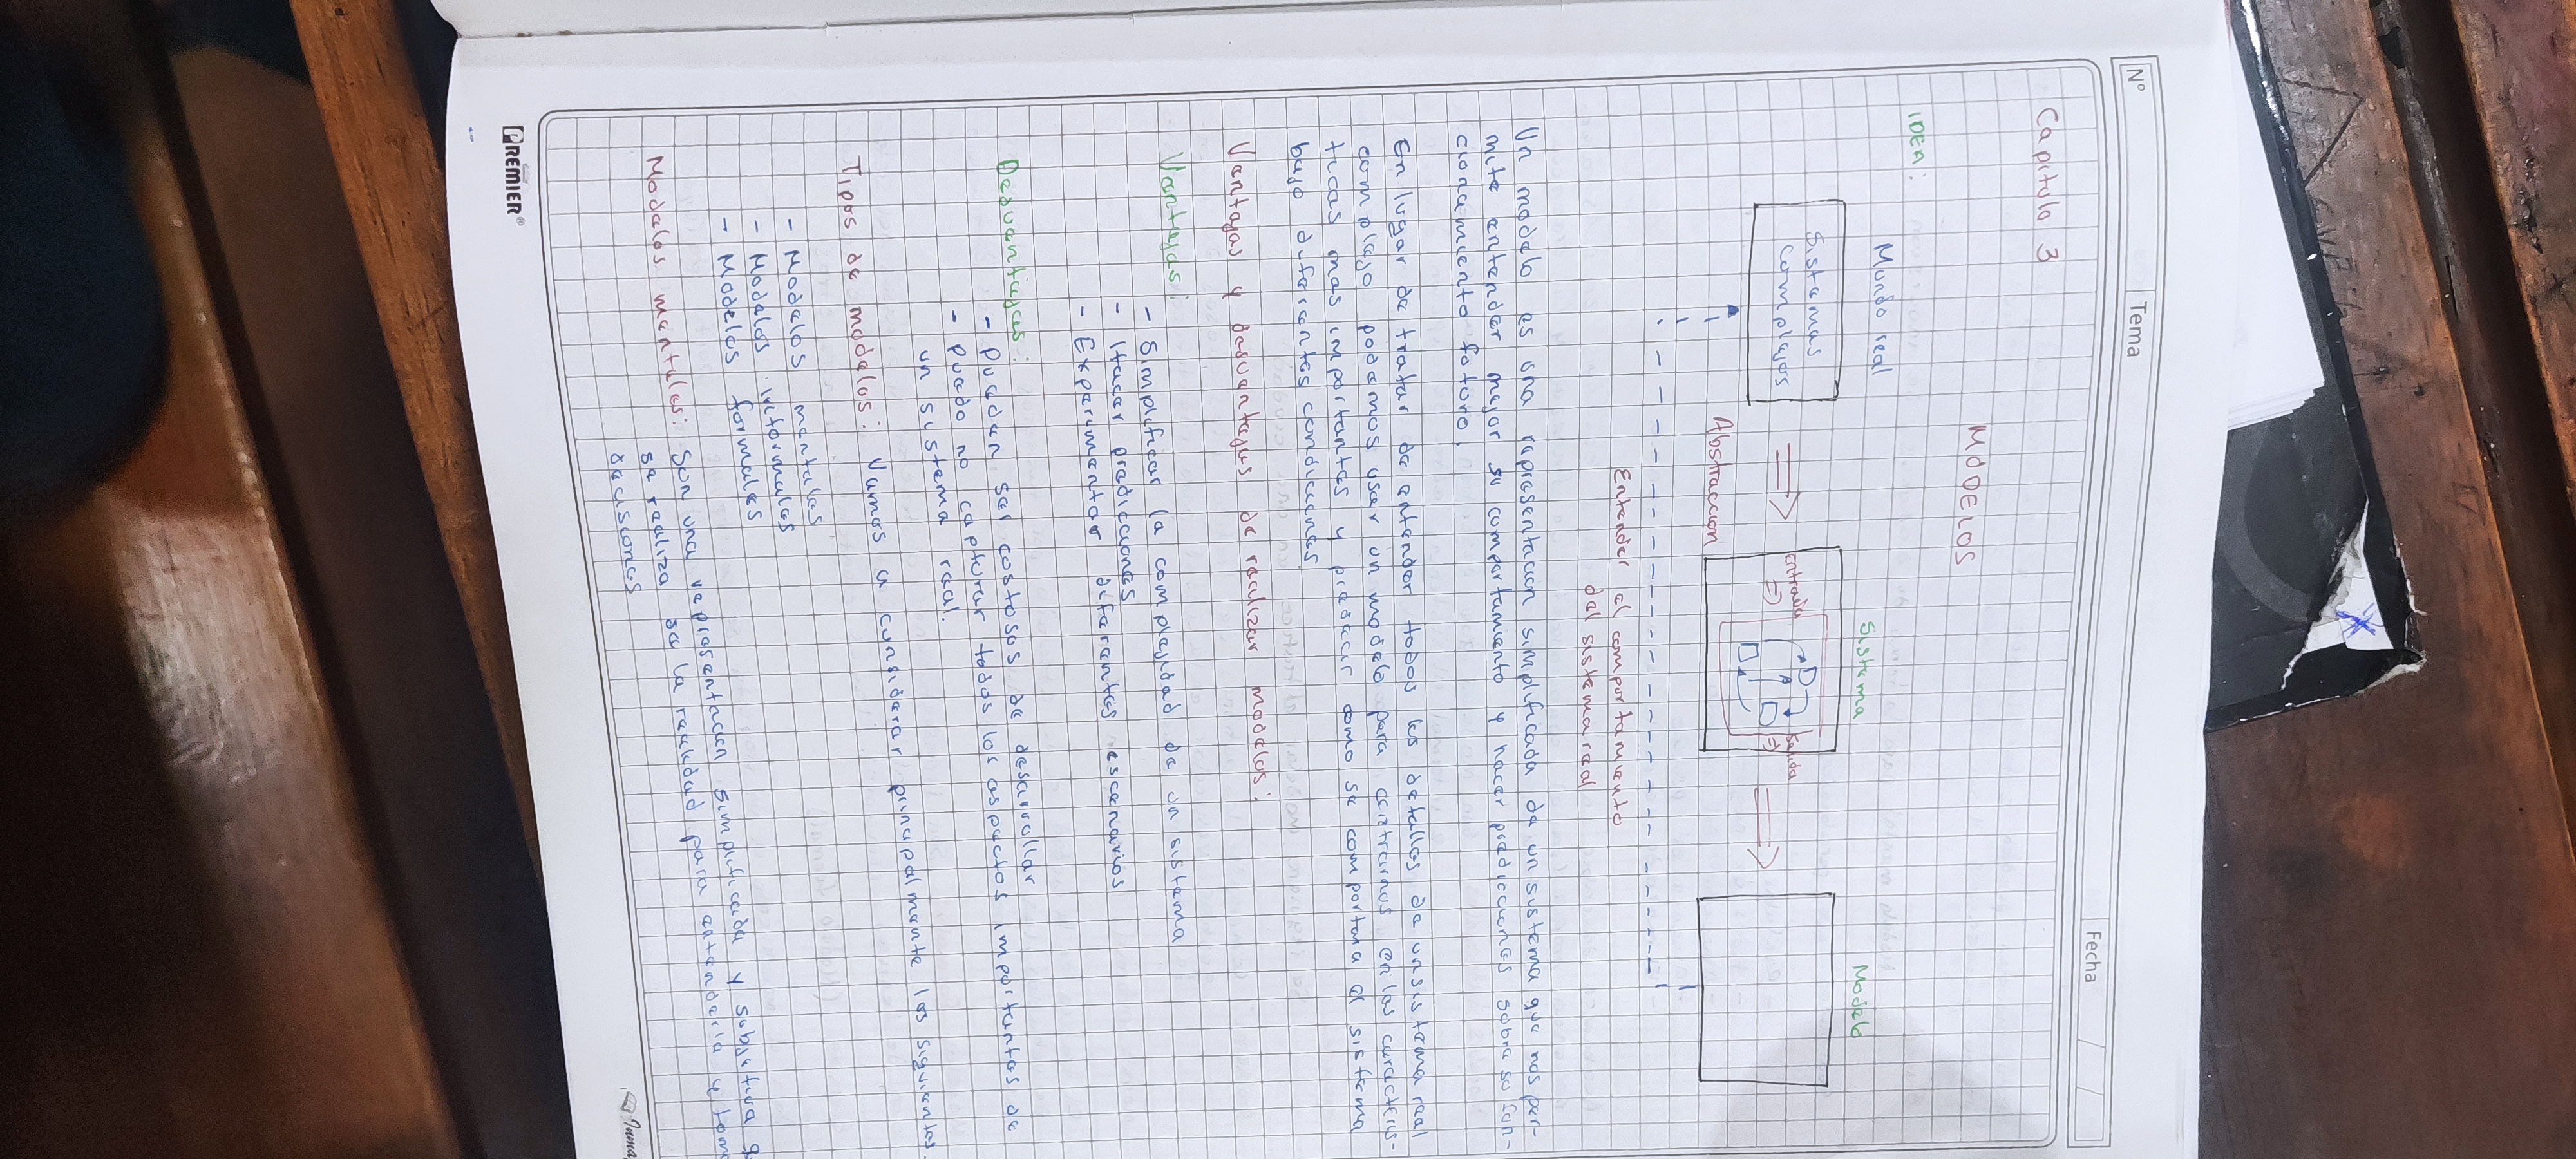 Nº
Tema
Fecha
Capitulo 3
MODELOS
IDEA:
Mundo real
Sistema
Modelo
Sistemas
complejos
entrada
salida
Abstraccion
Entender el comportamiento
del sistema real
Un modelo es una representacion simplificada de un sistema que nos per-
mite entender mejor su comportamiento y hacer predicciones sobre su fun-
cionamiento futuro.
En lugar de tratar de entender todos los detalles de un sistema real
complejo podemos usar un modelo para centrarnos en las caracteris-
ticas mas importantes y predecir como se comportara el sistema
bajo diferentes condiciones
Vantajas y desventajas de realizar modelos:
Ventajas:
- Simplificar la complejidad de un sistema
- Hacer predicciones
- Experimentar diferentes escenarios
Desventajas:
- pueden ser costosos de desarrollar
- puede no capturar todos los aspectos importantes de
un sistema real.
Tipos de modelos: Vamos a considerar principalmente los siguientes
- Modelos mentales
- Modelos informales
- Modelos formales
Modelos mentales: Son una representacion simplificada y subjetiva q
se realiza de la realidad para entenderla y tom
decisiones
PREMIER®